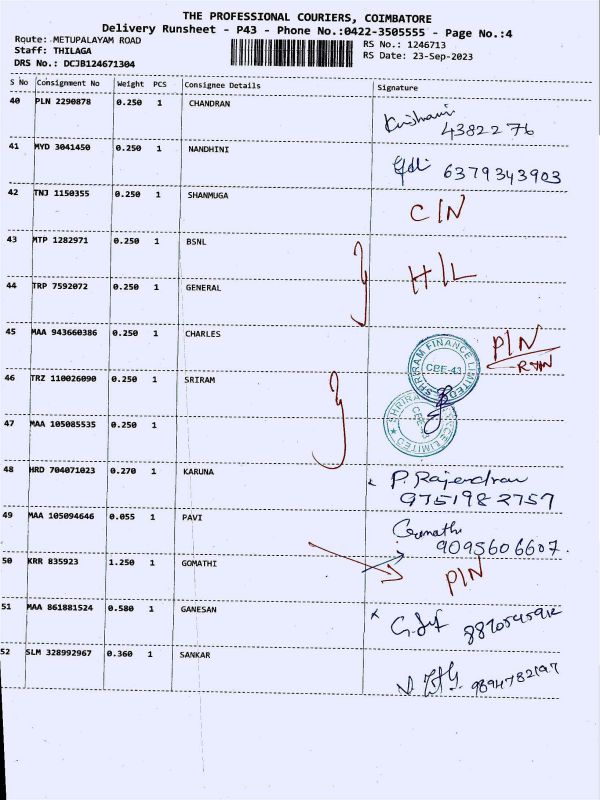 THE PROFESSIONAL COURIERS, COIMBATORE
Delivery Runsheet - P43 - Phone No.:0422-3505555 - Page No.:4
Route: METUPALAYAM ROAD
Staff: THILAGA
DRS No.: DCJB124671304
RS No.: 1246713
RS Date: 23-Sep-2023
S No Consignment No Weight PCS Consignee Details Signature
40 PLN 2290878 0.250 1 CHANDRAN
4382276
41 MYD 3041450 0.250 1 NANDHINI
6379343903
42 TNJ 1150355 0.250 1 SHANMUGA C/N
43 MTP 1282971 0.250 1 BSNL
H/L
44 TRP 7592072 0.250 1 GENERAL
45 MAA 943660386 0.250 1 CHARLES P/N
SHRIRAM FINANCE LIMITED
CBE-43
46 TRZ 110026090 0.250 1 SRIRAM
SHRIRAM FINANCE LIMITED
47 MAA 105085535 0.250 1
48 HRD 704071023 0.270 1 KARUNA P. Rajendran
9751982757
49 MAA 105094646 0.055 1 PAVI Gomathi
9095606607.
50 KRR 835923 1.250 1 GOMATHI P/N
51 MAA 861881524 0.580 1 GANESAN
52 SLM 328992967 0.360 1 SANKAR
9894782197